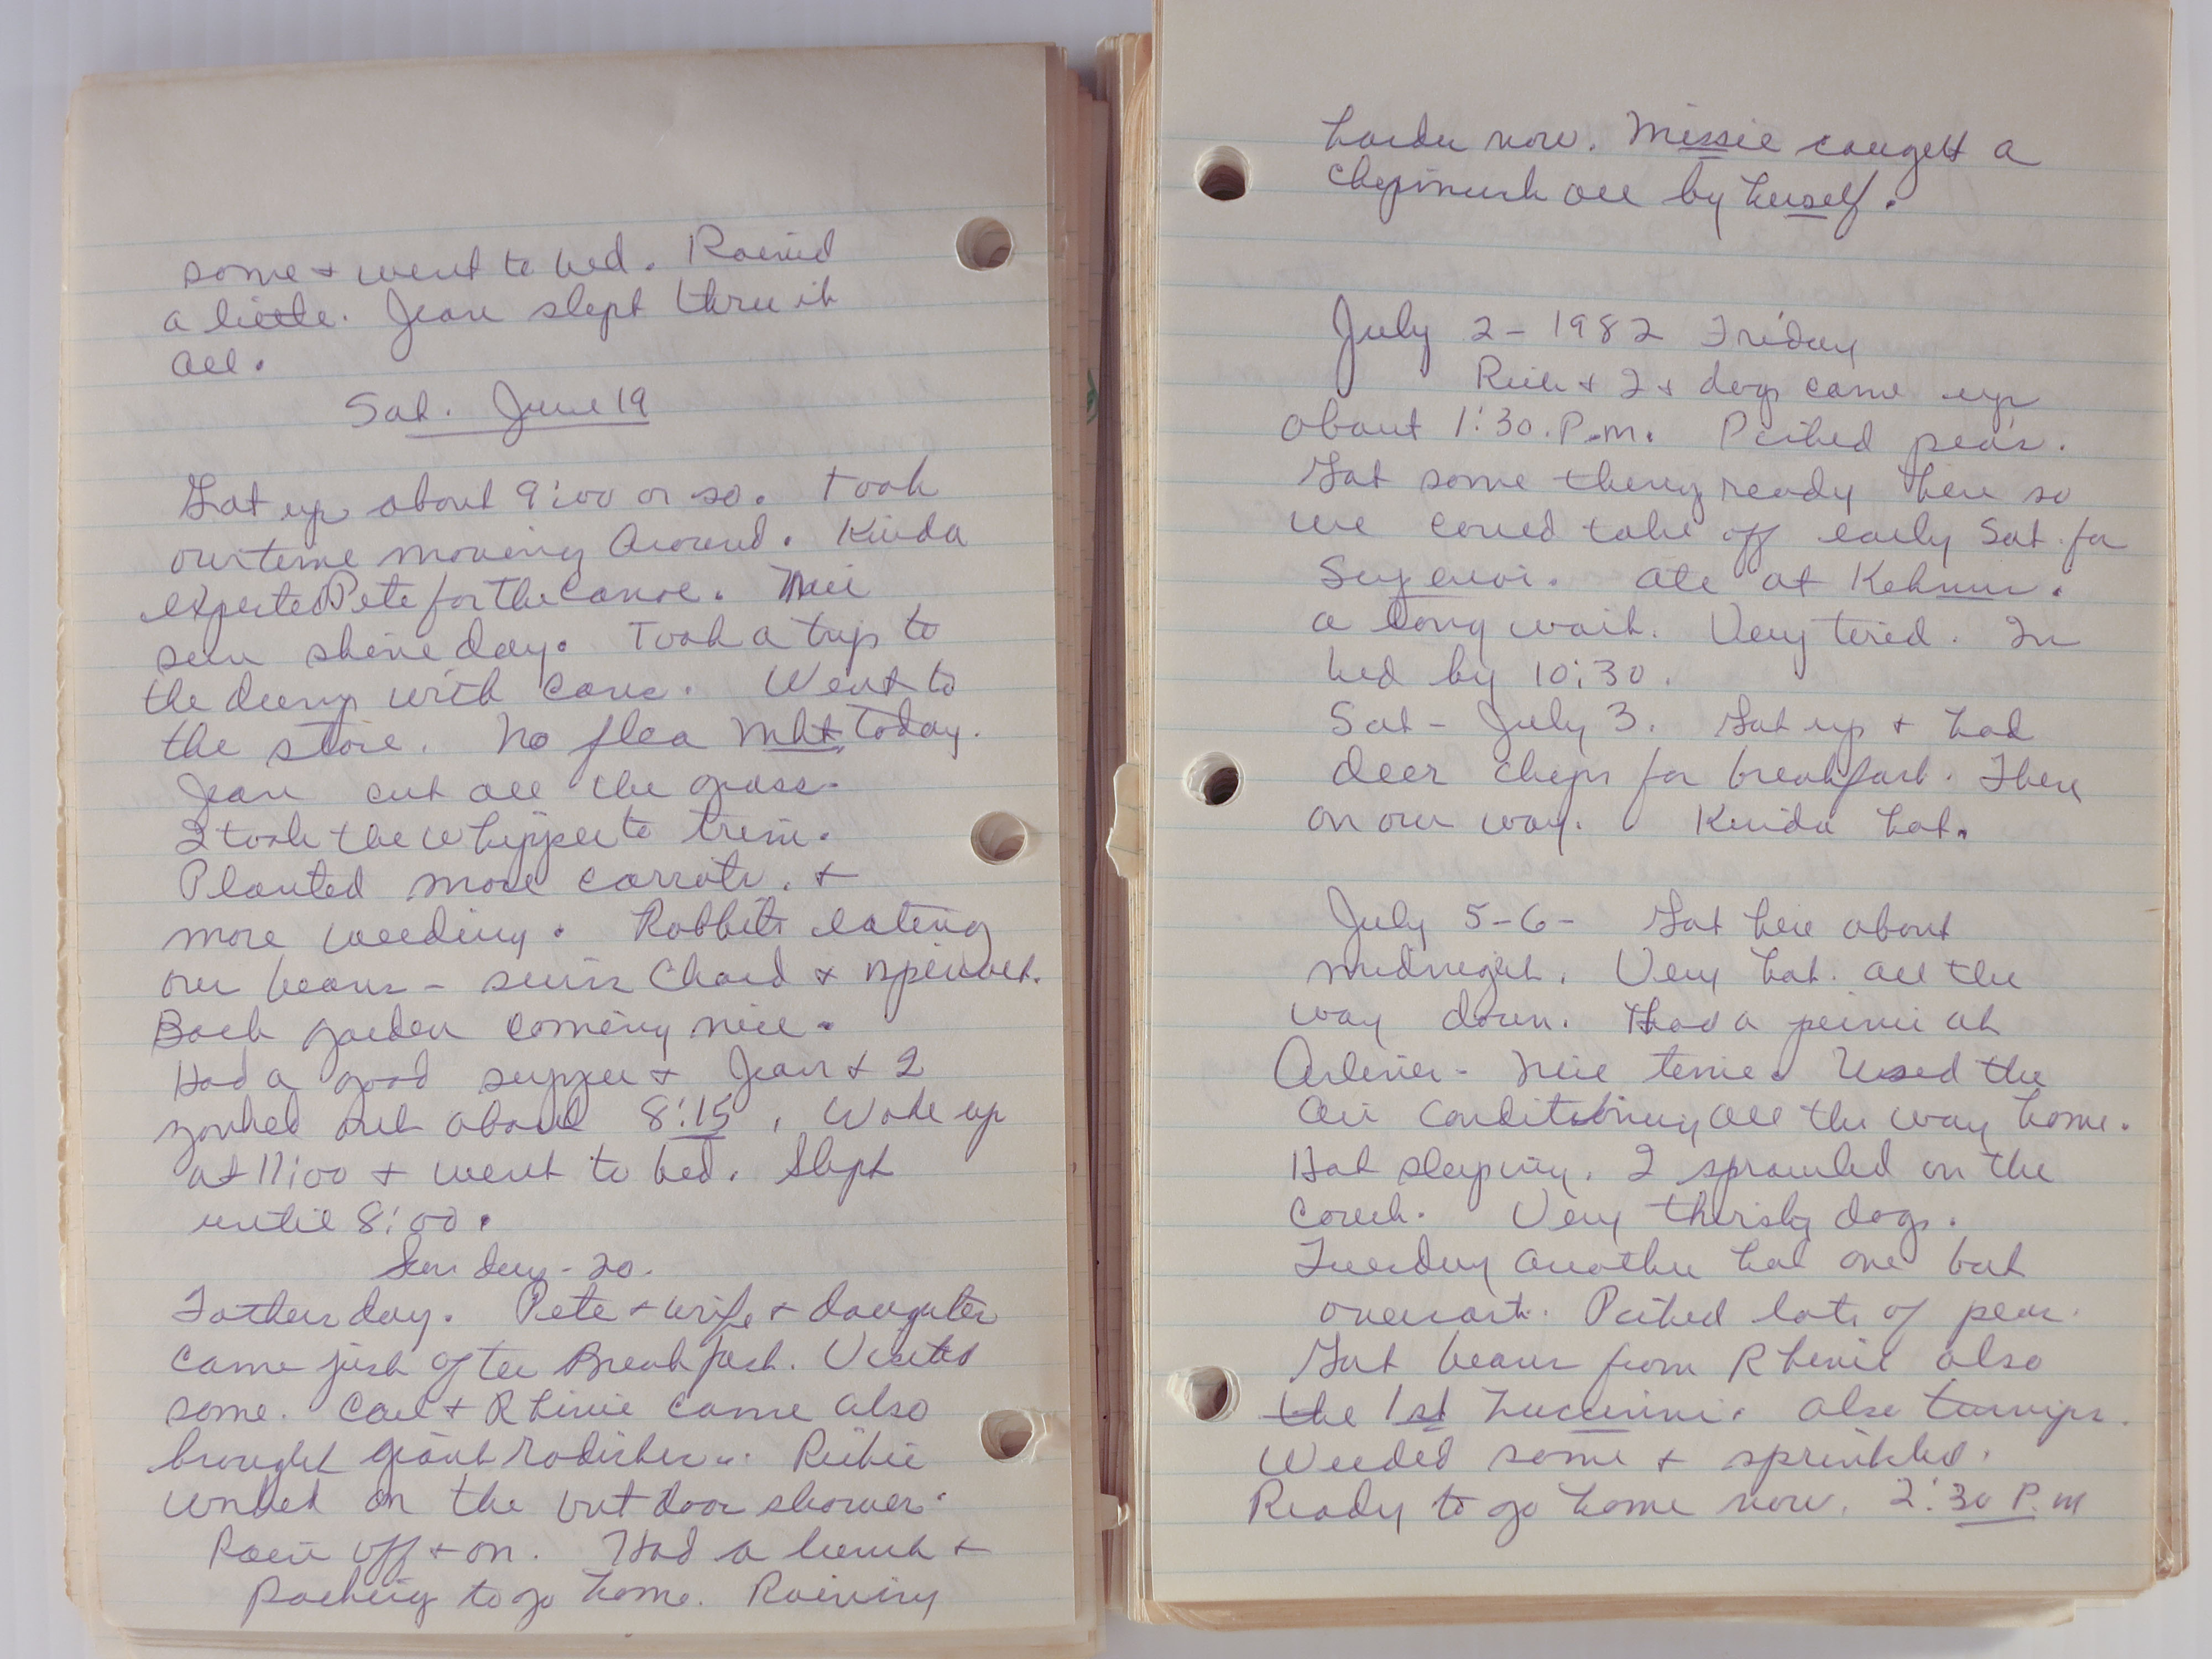 some + went to bed. Rained
a little. Jean slept thru it
all.
Sat. June 19
Got up about 9:00 or so. Took
our time moving Around. Kinda
expected Pete for the Canoe. Nice
sun shine day. Took a trip to
the dump with cans. Went to
the store. No flea Mkt. today.
Jean cut all the grass.
I took the whipper to trim.
Planted more carrots. +
more weeding. Rabbits eating
our beans - swiss Chard +
Back garden coming nice.
Had a good supper + Jean + I
zonked out about 8:15, Woke up
at 11:00 + went to bed. Slept
until 8:00.
Sunday - 20.
Fathers day. Pete + wife + daughter
came just after Breakfast. Visited
some. Carl + Rhinie came also
brought giant radishes. Richie
worked on the outdoor shower.
Rain off + on. Had a lunch +
Packing to go home. Raining
harder now. Missie caught a
chipmunk all by herself.
July 2 - 1982 Friday
Rich + I + dogs came up
about 1:30. P.m. Picked peas.
Got some things ready here so
we could take off early Sat. for
ate at
a long wait. Very tired. In
bed by 10:30.
Sat - July 3. Got up + had
deer chops for breakfast. Then
on our way. Kinda hot.
July 5-6- Got here about
midnight. Very hot. all the
way down. Had a picnic at
Arlenes - Nice time. Used the
air conditioning all the way home.
Hot sleeping. I sprawled on the
couch. Very thirsty dogs.
Tuesday another hot one but
overcast. Picked lots of peas.
Got beans from Rhinie also
the 1st Zuccinni. also turnips.
Weeded some + sprinkled.
Ready to go home now. 2:30 P.m